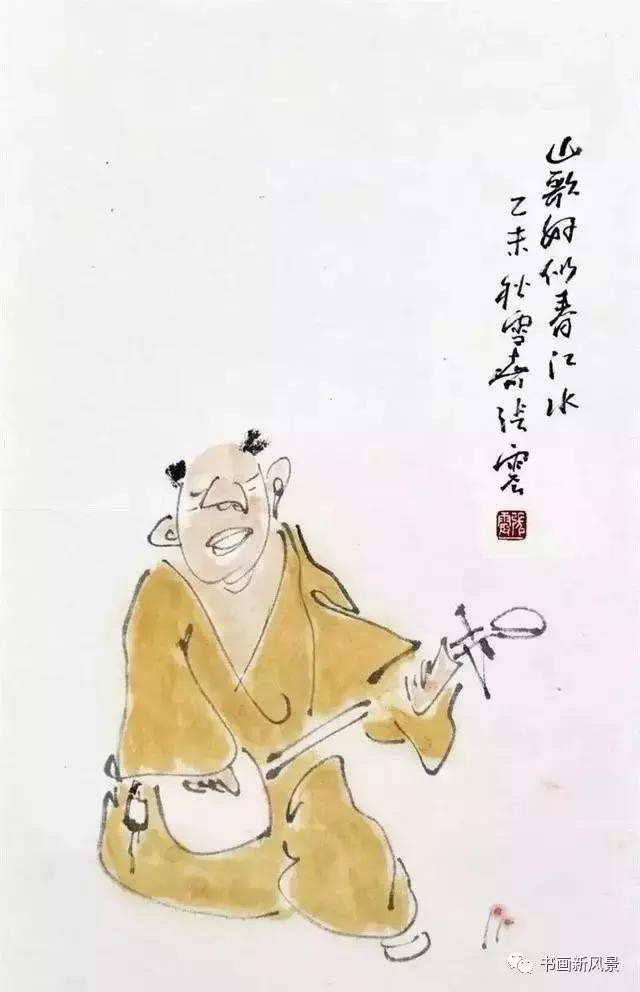 山歌好似春江水
乙未秋雪张
书画新风景